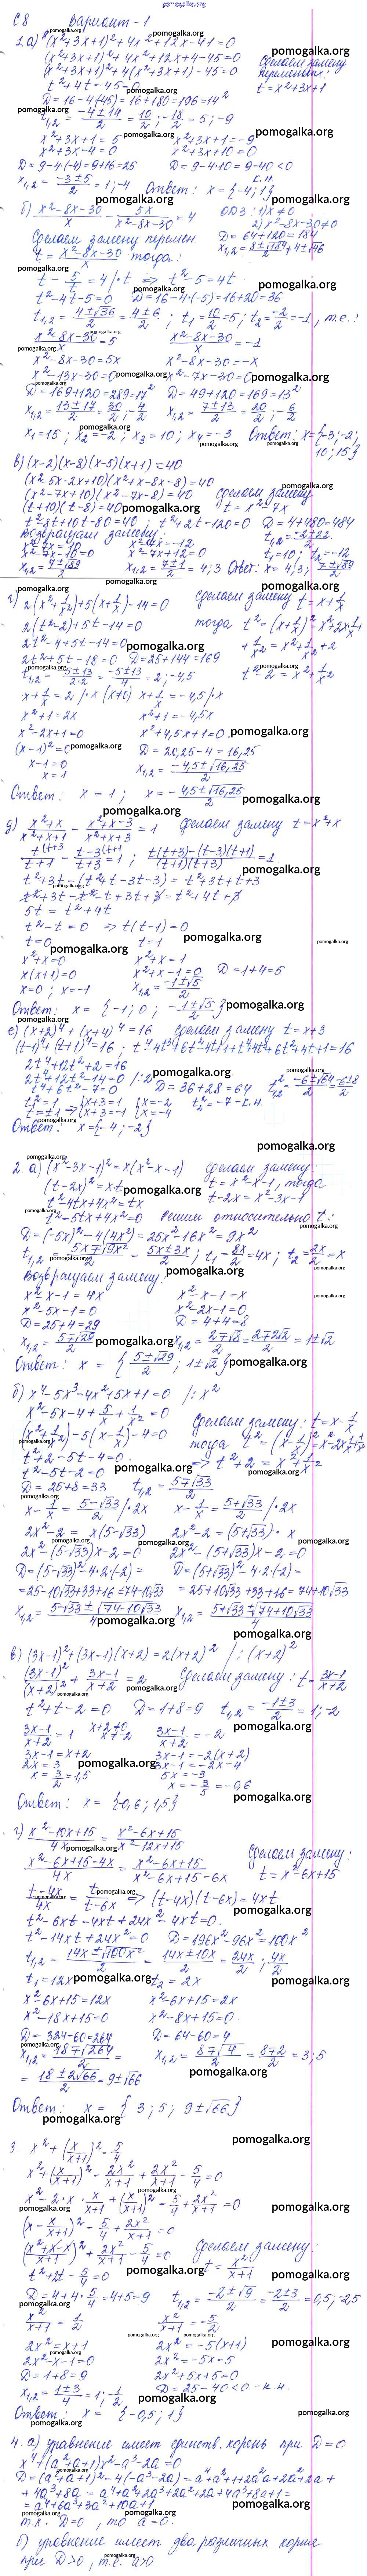 pomogalka.org
С8 Вариант - 1
1.а) (x²+3x+1)²+4x²+12x-41=0
(x²+3x+1)²+4x²+12x+4-45=0
(x²+3x+1)²+4(x²+3x+1)-45=0
Сделаем замену переменных: t=x²+3x+1
t²+4t-45=0
D=16-4·(-45)=16+180=196=14²
t₁,₂ = (-4±14)/2 = 10/2; -18/2 = 5; -9
x²+3x+1=5 x²+3x+1=-9
x²+3x-4=0 x²+3x+10=0
D=9-4·(-4)=9+16=25 D=9-4·10=9-40<0
x₁,₂ = (-3±5)/2 = 1; -4 к.н.
Ответ: x={-4; 1}
б) (x²-8x-30)/x - 5x/(x²-8x-30) = 4 ОДЗ: 1) x≠0
2) x²-8x-30≠0
Сделаем замену перемен. D=64+120=184
t=(x²-8x-30)/x тогда: x₁,₂=(8±√184)/2≠4±√46
t - 5/t = 4 /·t ⇒ t²-5=4t
t²-4t-5=0 D=16-4·(-5)=16+20=36
t₁,₂=(4±√36)/2=(4±6)/2; t₁=10/2=5; t₂=-2/2=-1, т.е.:
(x²-8x-30)/x=5 (x²-8x-30)/x=-1
x²-8x-30=5x x²-8x-30=-x
x²-13x-30=0 x²-7x-30=0
D=169+120=289=17² D=49+120=169=13²
x₁,₂=(13±17)/2=30/2; -4/2 x₁,₂=(7±13)/2=20/2; -6/2
x₁=15; x₂=-2; x₃=10; x₄=-3 Ответ: x={-3; -2; 10; 15}
в) (x-2)(x-8)(x-5)(x+1)=40
(x²-5x-2x+10)(x²+x-8x-8)=40
(x²-7x+10)(x²-7x-8)=40 Сделаем замену
(t+10)(t-8)=40 t=x²-7x
t²-8t+10t-80=40; t²+2t-120=0 D=4+480=484
Возвращаем замену t₁,₂=(-2±22)/2
x²-7x=10 x²-7x=-12 t₁=10; t₂=-12
x²-7x-10=0 x²-7x+12=0
x₁,₂=(7±√89)/2 x₁,₂=(7±1)/2=4; 3 Ответ: x=4; 3; (7±√89)/2
г) 2(x²+1/x²)+5(x+1/x)-14=0 Сделаем замену t=x+1/x
2(t²-2)+5t-14=0 тогда t²=(x+1/x)²=x²+2x·1/x+
2t²-4+5t-14=0 +1/x²=x²+1/x²+2
2t²+5t-18=0 D=25+144=169 t²-2=x²+1/x²
t₁,₂=(-5±13)/(2·2)=(-5±13)/4=2; -4,5
x+1/x=2 /·x (x≠0) x+1/x=-4,5 /·x
x²+1=2x x²+1=-4,5x
x²-2x+1=0 x²+4,5x+1=0
(x-1)²=0 D=20,25-4=16,25
x-1=0 x₁,₂=(-4,5±√16,25)/2
x=1
Ответ: x=1; x=(-4,5±√16,25)/2
д) (x²+x)/(x²+x+1) - (x²+x-3)/(x²+x+3)=1 Сделаем замену t=x²+x
t/(t+1) - (t-3)/(t+3)=1; (t(t+3)-(t-3)(t+1))/((t+1)(t+3))=1
t²+3t-(t²+t-3t-3)=t²+3t+t+3
t²+3t-t²-t+3t+3=t²+4t+3
5t=t²+4t
t²-t=0 ⇒ t(t-1)=0
t=0 t=1
x²+x=0 x²+x=1
x(x+1)=0 x²+x-1=0 D=1+4=5
x=0; x=-1 x₁,₂=(-1±√5)/2
Ответ: x={-1; 0; (-1±√5)/2}
е) (x+2)⁴+(x+4)⁴=16 Сделаем замену t=x+3
(t-1)⁴+(t+1)⁴=16; t⁴-4t³+6t²-4t+1+t⁴+4t³+6t²+4t+1=16
2t⁴+12t²+2=16
2t⁴+12t²-14=0 /:2
t⁴+6t²-7=0 D=36+28=64 t²₁,₂=(-6±√64)/2=(-6±8)/2
t²=1 t²=-7 - к.н.
t=±1 ⇒ x+3=1 x=-2
x+3=-1 x=-4
Ответ: x={-4; -2}
2.а) (x²-3x-1)²=x(x²-x-1) Сделаем замену:
(t-2x)²=x·t t=x²-x-1, тогда
t²-4tx+4x²=tx t-2x=x²-3x-1
t²-5tx+4x²=0 Решим относительно t:
D=(-5x)²-4(4x²)=25x²-16x²=9x²
t₁,₂=(5x±√9x²)/2=(5x±3x)/2; t₁=8x/2=4x; t₂=2x/2=x
Возвращаем замену:
x²-x-1=4x x²-x-1=x
x²-5x-1=0 x²-2x-1=0
D=25+4=29 D=4+4=8
x₁,₂=(5±√29)/2 x₁,₂=(2±√8)/2=(2±2√2)/2=1±√2
Ответ: x={(5±√29)/2; 1±√2}
б) x⁴-5x³-4x²+5x+1=0 /:x²
x²-5x-4+5/x+1/x²=0
(x²+1/x²)-5(x-1/x)-4=0 Сделаем замену: t=x-1/x
t²+2-5t-4=0 тогда t²=(x-1/x)²=x²-2x·1/x+1/x²
t²-5t-2=0 ⇒ t²+2=x²+1/x²
D=25+8=33 t₁,₂=(5±√33)/2
x-1/x=(5-√33)/2 /·2x x-1/x=(5+√33)/2 /·2x
2x²-2=x(5-√33) 2x²-2=(5+√33)·x
2x²-(5-√33)x-2=0 2x²-(5+√33)x-2=0
D=(5-√33)²-4·2·(-2)= D=(5+√33)²-4·2·(-2)=
=25-10√33+33+16=74-10√33 =25+10√33+33+16=74+10√33
x₁,₂=(5-√33±√(74-10√33))/4 x₁,₂=(5+√33±√(74+10√33))/4
в) (3x-1)²+(3x-1)(x+2)=2(x+2)² /:(x+2)²
(3x-1)²/(x+2)²+(3x-1)/(x+2)=2 Сделаем замену: t=(3x-1)/(x+2)
t²+t-2=0 D=1+8=9 t₁,₂=(-1±3)/2=1; -2
(3x-1)/(x+2)=1 x+2≠0 x≠-2 (3x-1)/(x+2)=-2
3x-1=x+2 3x-1=-2(x+2)
2x=3 3x-1=-2x-4
x=3/2=1,5 5x=-3
x=-3/5=-0,6
Ответ: x={-0,6; 1,5}
г) (x²-10x+15)/4x=(x²-6x+15)/(x²-12x+15)
(x²-6x+15-4x)/4x=(x²-6x+15)/(x²-6x+15-6x) Сделаем замену:
t=x²-6x+15
(t-4x)/4x=t/(t-6x) ⇒ (t-4x)(t-6x)=4xt
t²-6xt-4xt+24x²-4xt=0
t²-14xt+24x²=0 D=196x²-96x²=100x²
t₁,₂=(14x±√100x²)/2=(14x±10x)/2=24x/2; 4x/2
t₁=12x t₂=2x
x²-6x+15=12x x²-6x+15=2x
x²-18x+15=0 x²-8x+15=0
D=324-60=264 D=64-60=4
x₁,₂=(18±√264)/2= x₁,₂=(8±√4)/2=(8±2)/2=3; 5
=(18±2√66)/2=9±√66
Ответ: x={3; 5; 9±√66}
3. x²+(x/(x+1))²=5/4
x²+(x/(x+1))²-2x²/(x+1)+2x²/(x+1)-5/4=0
x²-2·x·x/(x+1)+(x/(x+1))²-5/4+2x²/(x+1)=0
(x-x/(x+1))²-5/4+2x²/(x+1)=0
((x²+x-x)/(x+1))²+2x²/(x+1)-5/4=0 Сделаем замену:
t²+2t-5/4=0 t=x²/(x+1)
D=4+4·5/4=4+5=9 t₁,₂=(-2±√9)/2=(-2±3)/2=0,5; -2,5
x²/(x+1)=1/2 x²/(x+1)=-5/2
2x²=x+1 2x²=-5(x+1)
2x²-x-1=0 2x²=-5x-5
D=1+8=9 2x²+5x+5=0
x₁,₂=(1±3)/4=1; -1/2 D=25-40<0 - к.н.
Ответ: x={-0,5; 1}
4. а) уравнение имеет единств. корень при D=0
x⁴+(a²+a+1)x²-a³-2a=0
D=(a²+a+1)²-4(-a³-2a)=a⁴+a²+1+2a³+2a²+2a+
+4a³+8a=a⁴+a²+2a³+2a²+2a+4a³+8a+1=
=a⁴+6a³+3a²+10a+1
т.к. D=0, то a=0.
б) уравнение имеет два различных корня
при D>0, т.е. a>0